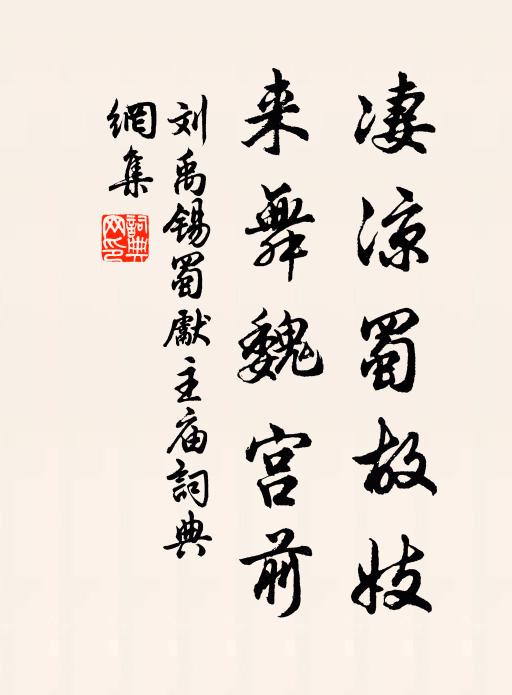 凄凉蜀故妓
来舞魏宫前
刘禹锡蜀獻主庙詞典
網集
詞典
网印